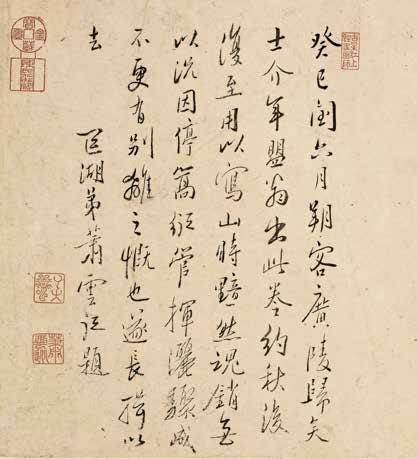 癸巳閏六月朔客廣陵歸矣
士介年盟翁出此卷約秋後
復至用以寫山時黯然魂銷無
以況因停篙管揮灑驟成
不更有別離之慨也遂長揖以
去
湖弟蕭雲從題